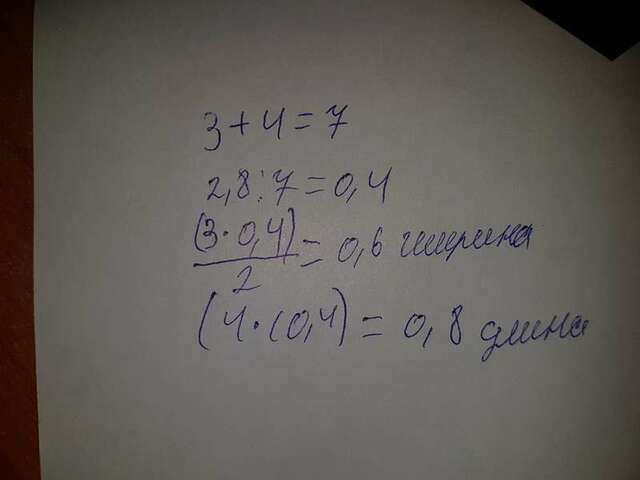 3+4=7
2,8:7=0,4
(3·0,4)/2=0,6 ширина
(4·(0,4)=0,8 длина